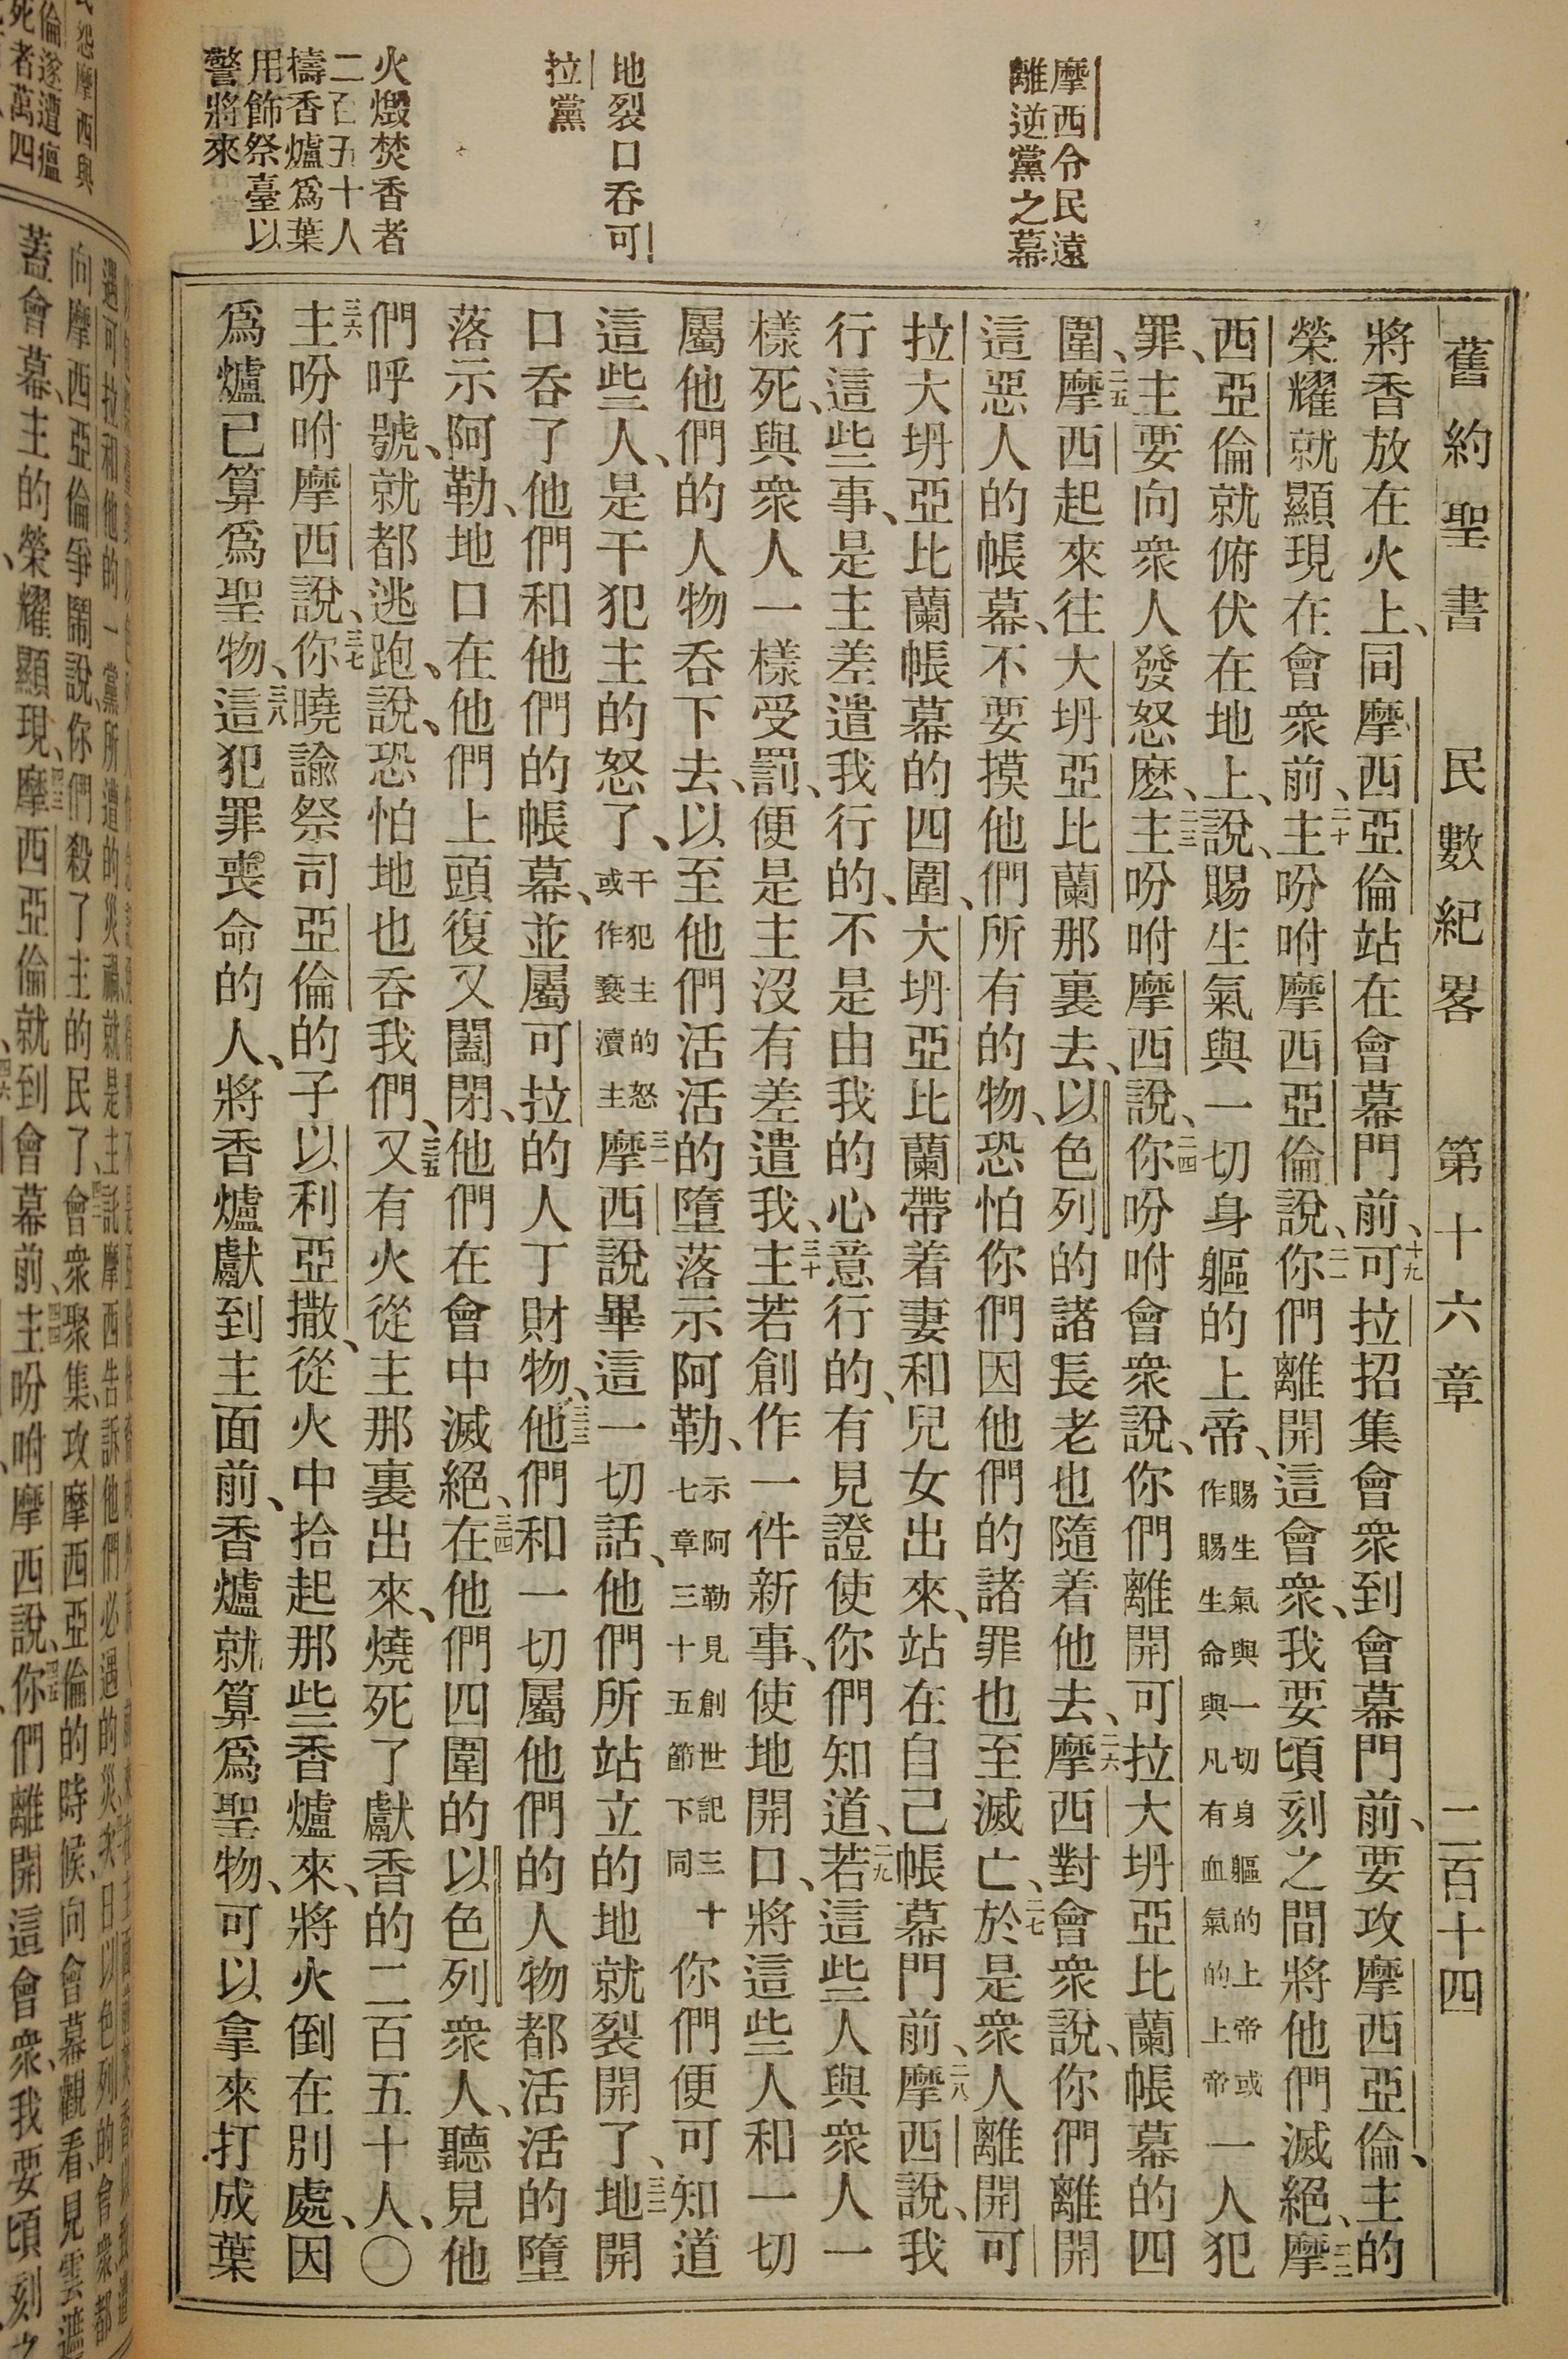 摩西令民遠
離逆黨之幕
地裂口吞可
拉黨
火燬焚香者
二百五十人
檮香爐爲葉
用飾祭臺以
警將來
舊約聖書 民數紀畧 第十六章 二百十四
將香放在火上、同摩西亞倫站在會幕門前、十九可拉招集會衆到會幕門前、要攻摩西亞倫、主的
榮耀就顯現在會衆前、二十主吩咐摩西亞倫說、二一你們離開這會衆、我要頃刻之間將他們滅絕、二二摩
西亞倫就俯伏在地上、說、賜生氣與一切身軀的上帝、賜生氣與一切身軀的上帝或作賜生命與凡有血氣的上帝一人犯
罪、主要向衆人發怒麽、二三主吩咐摩西說、二四你吩咐會衆說、你們離開可拉大坍亞比蘭帳幕的四
圍、二五摩西起來往大坍亞比蘭那裏去、以色列的諸長老也隨着他去、二六摩西對會衆說、你們離開
這惡人的帳幕、不要摸他們所有的物、恐怕你們因他們的諸罪也至滅亡、二七於是衆人離開可
拉大坍亞比蘭帳幕的四圍、大坍亞比蘭帶着妻和兒女出來、站在自己帳幕門前、二八摩西說、我
行這些事、是主差遣我行的、不是由我的心意行的、有見證使你們知道、二九若這些人與衆人一
樣死、與衆人一樣受罰、便是主沒有差遣我、三十主若創作一件新事、使地開口、將這些人和一切
屬他們的人物吞下去、以至他們活活的墮落示阿勒、示阿勒見創世記三十七章三十五節下同你們便可知道
這些人、是干犯主的怒了、干犯主的怒或作褻瀆主三一摩西說畢這一切話、他們所站立的地就裂開了、三二地開
口吞了他們和他們的帳幕、並屬可拉的人丁財物、三三他們和一切屬他們的人物都活活的墮
落示阿勒、地口在他們上頭復又闔閉、他們在會中滅絕、三四在他們四圍的以色列衆人、聽見他
們呼號、就都逃跑、說、恐怕地也吞我們、三五又有火從主那裏出來、燒死了獻香的二百五十人、〇
三六主吩咐摩西說、三七你曉諭祭司亞倫的子以利亞撒、從火中拾起那些香爐來、將火倒在別處、因
爲爐已算爲聖物、三八這犯罪喪命的人、將香爐獻到主面前、香爐就算爲聖物、可以拿來打成葉
民怨摩西與
倫遂遭瘟
死者萬四
向摩西亞倫爭鬧說、你們殺了主的民了、會衆聚集、攻摩西亞倫的時候、向會幕觀看、見雲遮
蓋會幕、主的榮耀顯現、摩西亞倫就到會幕前、主吩咐摩西說、你們離開這會衆、我要頃刻之